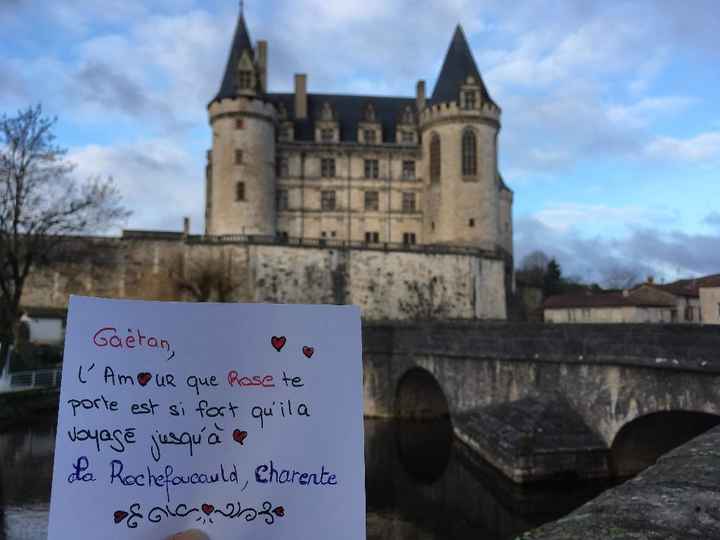 Gaëtan,
L'Am♥ur que Rose te
porte est si fort qu'il a
voyagé jusqu'à ♥
La Rochefoucauld, Charente